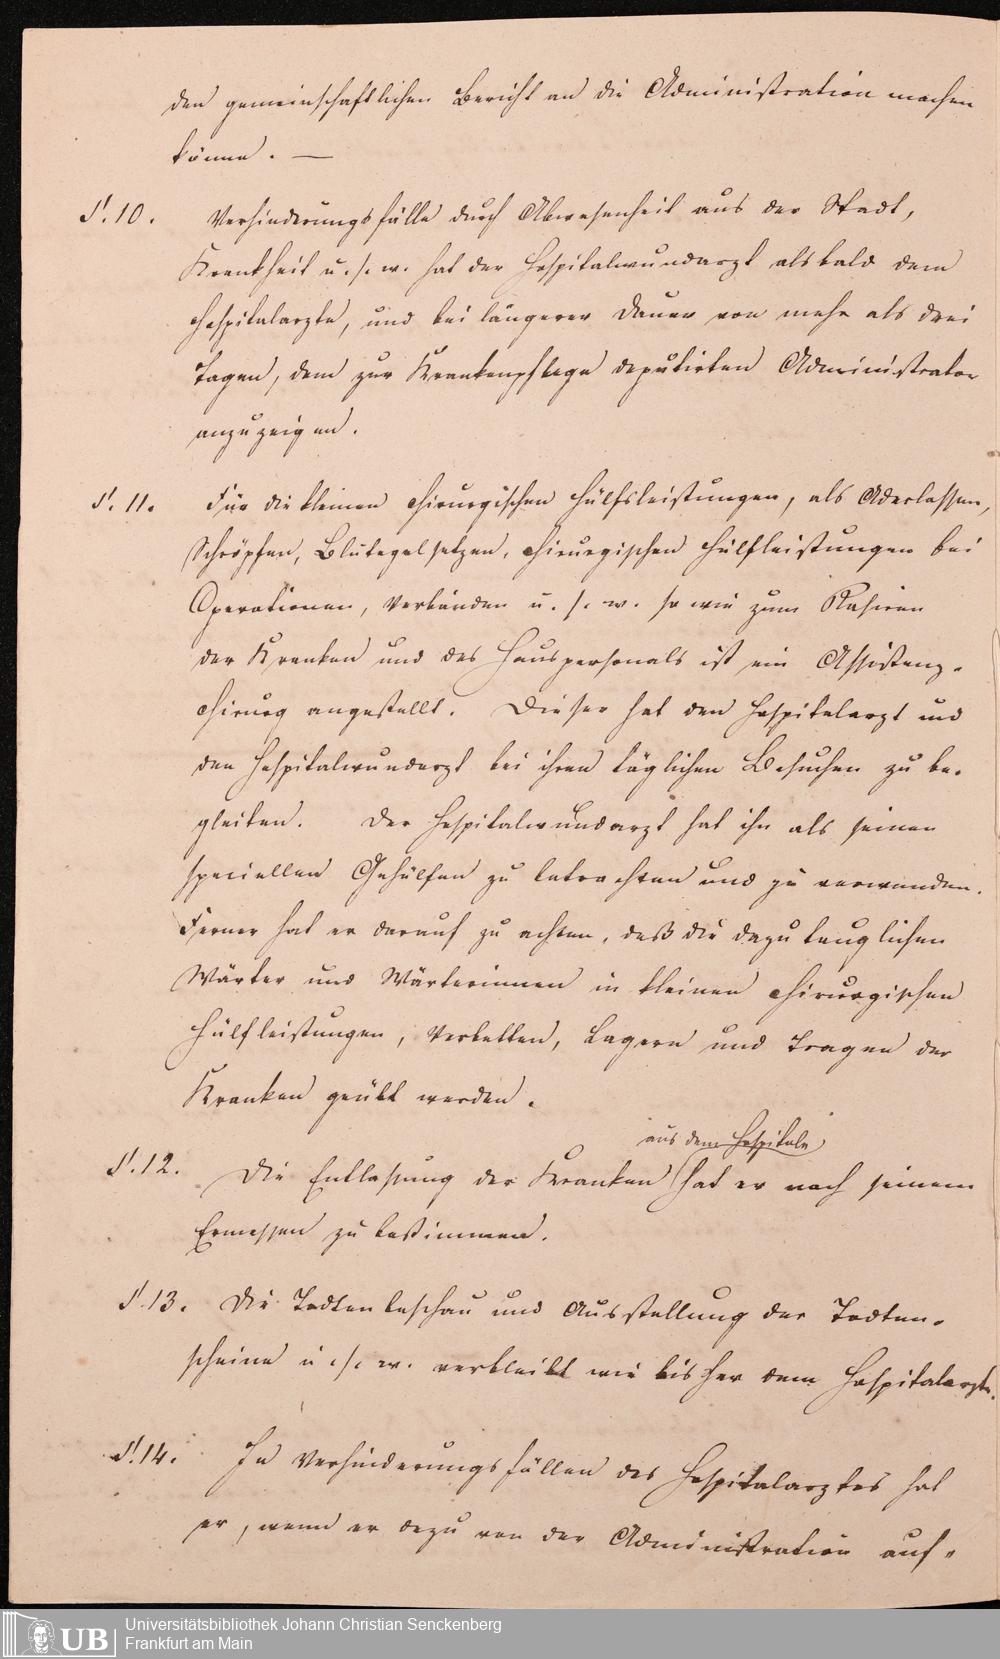 den gemeinschaftlichen Bericht an die Administration machen
könne. —
§. 10. Verhinderungsfälle durch Abwesenheit aus der Stadt,
Krankheit u. s. w. hat der Hospitalwundarzt alsbald dem
Hospitalarzte, und bei längerer Dauer von mehr als drei
Tagen, dem zur Krankenpflege deputirten Administrator
anzuzeigen.
§. 11. Für die kleinen chirurgischen Hülfsleistungen, als Aderlassen,
Schröpfen, Blutegelsetzen, chirurgischen Hülfleistungen bei
Operationen, Verbänden u. s. w. so wie zum Rasiren
der Kranken und des Hauspersonals ist ein Assistenz-
chirurg angestellt. Dieser hat den Hospitalarzt und
den Hospitalwundarzt bei ihren täglichen Besuchen zu be-
gleiten. Der Hospitalwundarzt hat ihn als seinen
speciellen Gehülfen zu betrachten und zu verwenden.
Ferner hat er darauf zu achten, daß die dazu tauglichen
Wärter und Wärterinnen in kleinen chirurgischen
Hülfleistungen, Verbetten, Lagern und Tragen der
Kranken geübt werden.
aus dem Hospitale
§. 12. Die Entlassung der Kranken hat er nach seinem
Ermessen zu bestimmen.
§. 13. Die Todtenbeschau und Ausstellung der Todten-
scheine u. s. w. verbleibt wie bisher dem Hospitalarzte.
§. 14. In Verhinderungsfällen des Hospitalarztes hat
er, wenn er dazu von der Administration auf-
Universitätsbibliothek Johann Christian Senckenberg
Frankfurt am Main
UB